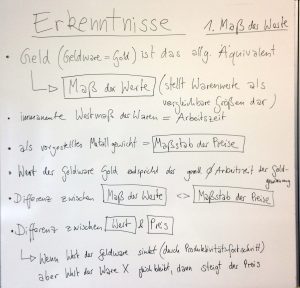 Erkenntnisse
1. Maß des Werte
• Geld (Geldware = Gold) ist das allg. Äquivalent
↳ Maß der Werte (stellt Warenwerte als
vergleichbare Größen dar)
• immanente Wertmaß des Waren = Arbeitszeit
• als vorgestelltes Metallgewicht = Maßstab der Preise
• Wert der Geldware Gold entspricht der gesell. Ø Arbeitszeit der Gold-
gewinnung
• Differenz zwischen Maß der Werte <-> Maßstab der Preise
• Differenz zwischen Wert & Preis
↳ Wenn Wert der Geldware sinkt (durch Produktivitätsfortschritt)
aber Wert der Ware X gleichbleibt, dann steigt der Preis